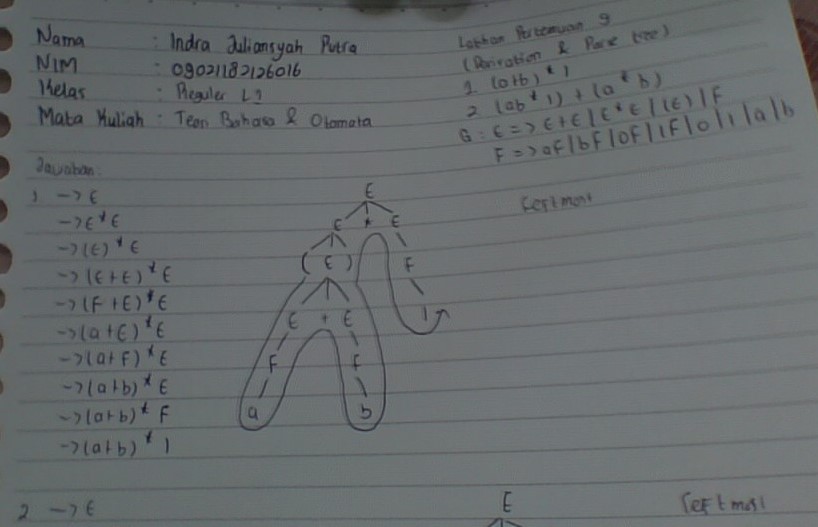 Nama : Indra Juliansyah Putra
NIM : 09021182126016
Kelas : Reguler L1
Mata Kuliah : Teori Bahasa & Otomata
Latihan Pertemuan 9
(Derivation & Parse tree)
1. (a+b) * 1
2 (ab * 1) + (a * b)
G : E => E+E | E*E | (E) | F
F => aF | bF | 0F | 1F | 0 | 1 | a | b
Jawaban:
1 -> E
-> E * E
-> (E) * E
-> (E+E) * E
-> (F+E) * E
-> (a+E) * E
-> (a+F) * E
-> (a+b) * E
-> (a+b) * F
-> (a+b) * 1
E
E * E
( E ) F
E + E 1
F F
a b
Leftmost
2 -> E
E
Leftmost